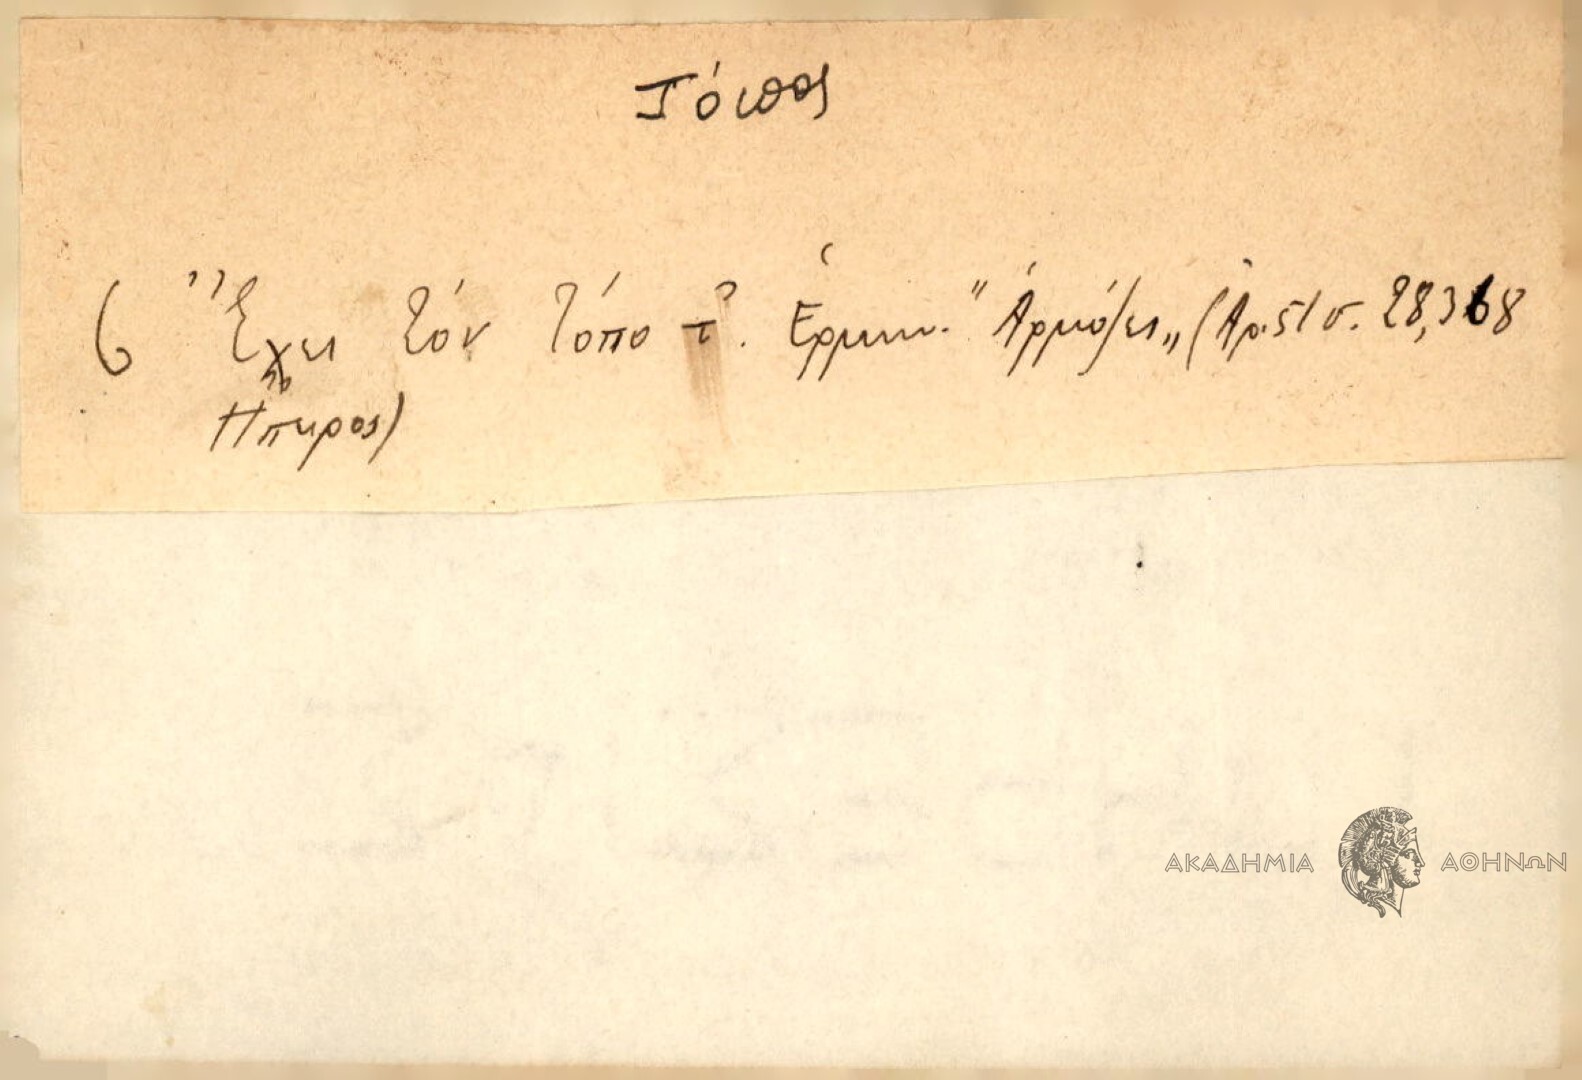 Τόπος
6 "Ἔχει τόν τόπο τ'. Ἑρμην. "Ἁρμόζει„ (Ἀρ. 51 σ. 28, 368
Ἤπειρος)
ΑΚΑΔΗΜΙΑ ΑΘΗΝΩΝ